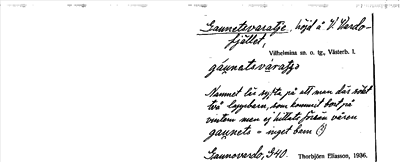 Gaunetsvaratje, höjd å V. Vardo-
fjället,
Vilhelmina sn. o. tg., Västerb. l.
gaunetsváratjə
Namnet lär syfta på att man där sökt
två lappbarn, som kommit bort på
vintern men ej hittats förrän våren
gaunets = inget barn (?)
Gaunovardo, G40.
Thorbjörn Eliasson, 1936.